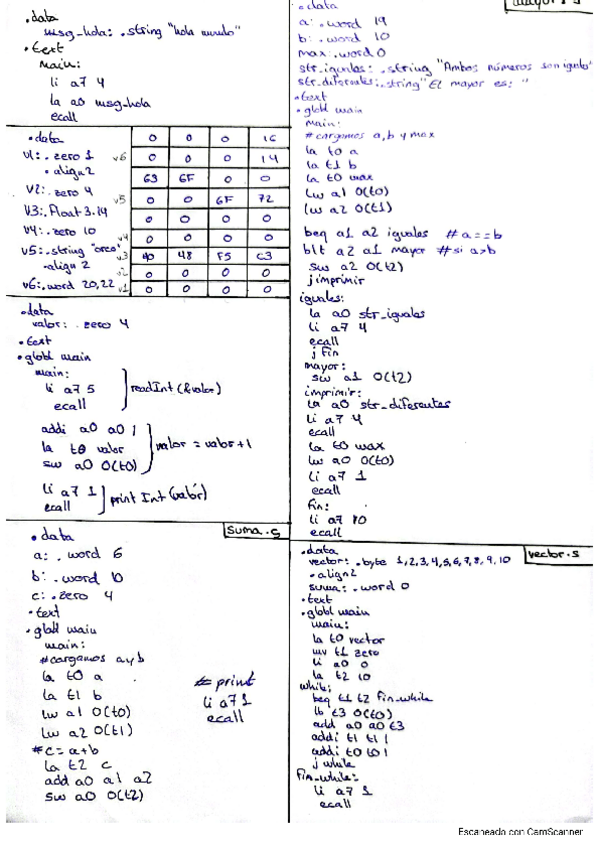 .data
msg_hola: .string "hola mundo"
.text
main:
li a7 4
la a0 msg_hola
ecall
.data
v1: .zero 1
.align 2
V2: .zero 4
V3: .float 3.14
V4: .zero 10
v5: .string "orco"
.align 2
v6: .word 20,22
0 0 0 16
v6 0 0 0 14
63 6F 0 0
v5 0 0 6F 72
0 0 0 0
v4 0 0 0 0
v3 40 48 F5 C3
v2 0 0 0 0
v1 0 0 0 0
.data
valor: .zero 4
.text
.globl main
main:
li a7 5
ecall
readInt (&valor)
addi a0 a0 1
la t0 valor
sw a0 0(t0)
valor = valor+1
li a7 1
ecall
print Int (valor)
suma.s
.data
a: .word 6
b: .word 10
c: .zero 4
.text
.globl main
main:
#cargamos a y b
la t0 a
la t1 b
lw a1 0(t0)
lw a2 0(t1)
#c=a+b
la t2 c
add a0 a1 a2
sw a0 0(t2)
# print
li a7 1
ecall
.data
a: .word 19
b: .word 10
max: .word 0
str_iguales: .string "Ambos números son iguales"
str_diferentes: .string "El mayor es: "
.text
.globl main
main:
#cargamos a,b y max
la t0 a
la t1 b
la t0 max
lw a1 0(t0)
lw a2 0(t1)
beq a1 a2 iguales #a==b
blt a2 a1 mayor #si a>b
sw a2 0(t2)
j imprimir
iguales:
la a0 str_iguales
li a7 4
ecall
j fin
mayor:
sw a1 0(t2)
imprimir:
la a0 str_diferentes
li a7 4
ecall
la t0 max
lw a0 0(t0)
li a7 1
ecall
fin:
li a7 10
ecall
vector.s
.data
vector: .byte 1,2,3,4,5,6,7,8,9,10
.align 2
suma: .word 0
.text
.globl main
main:
la t0 vector
mv t1 zero
li a0 0
la t2 10
while:
beq t1 t2 fin_while
lb t3 0(t0)
add a0 a0 t3
addi t1 t1 1
addi t0 t0 1
j while
fin_while:
li a7 1
ecall
Escaneado con CamScanner